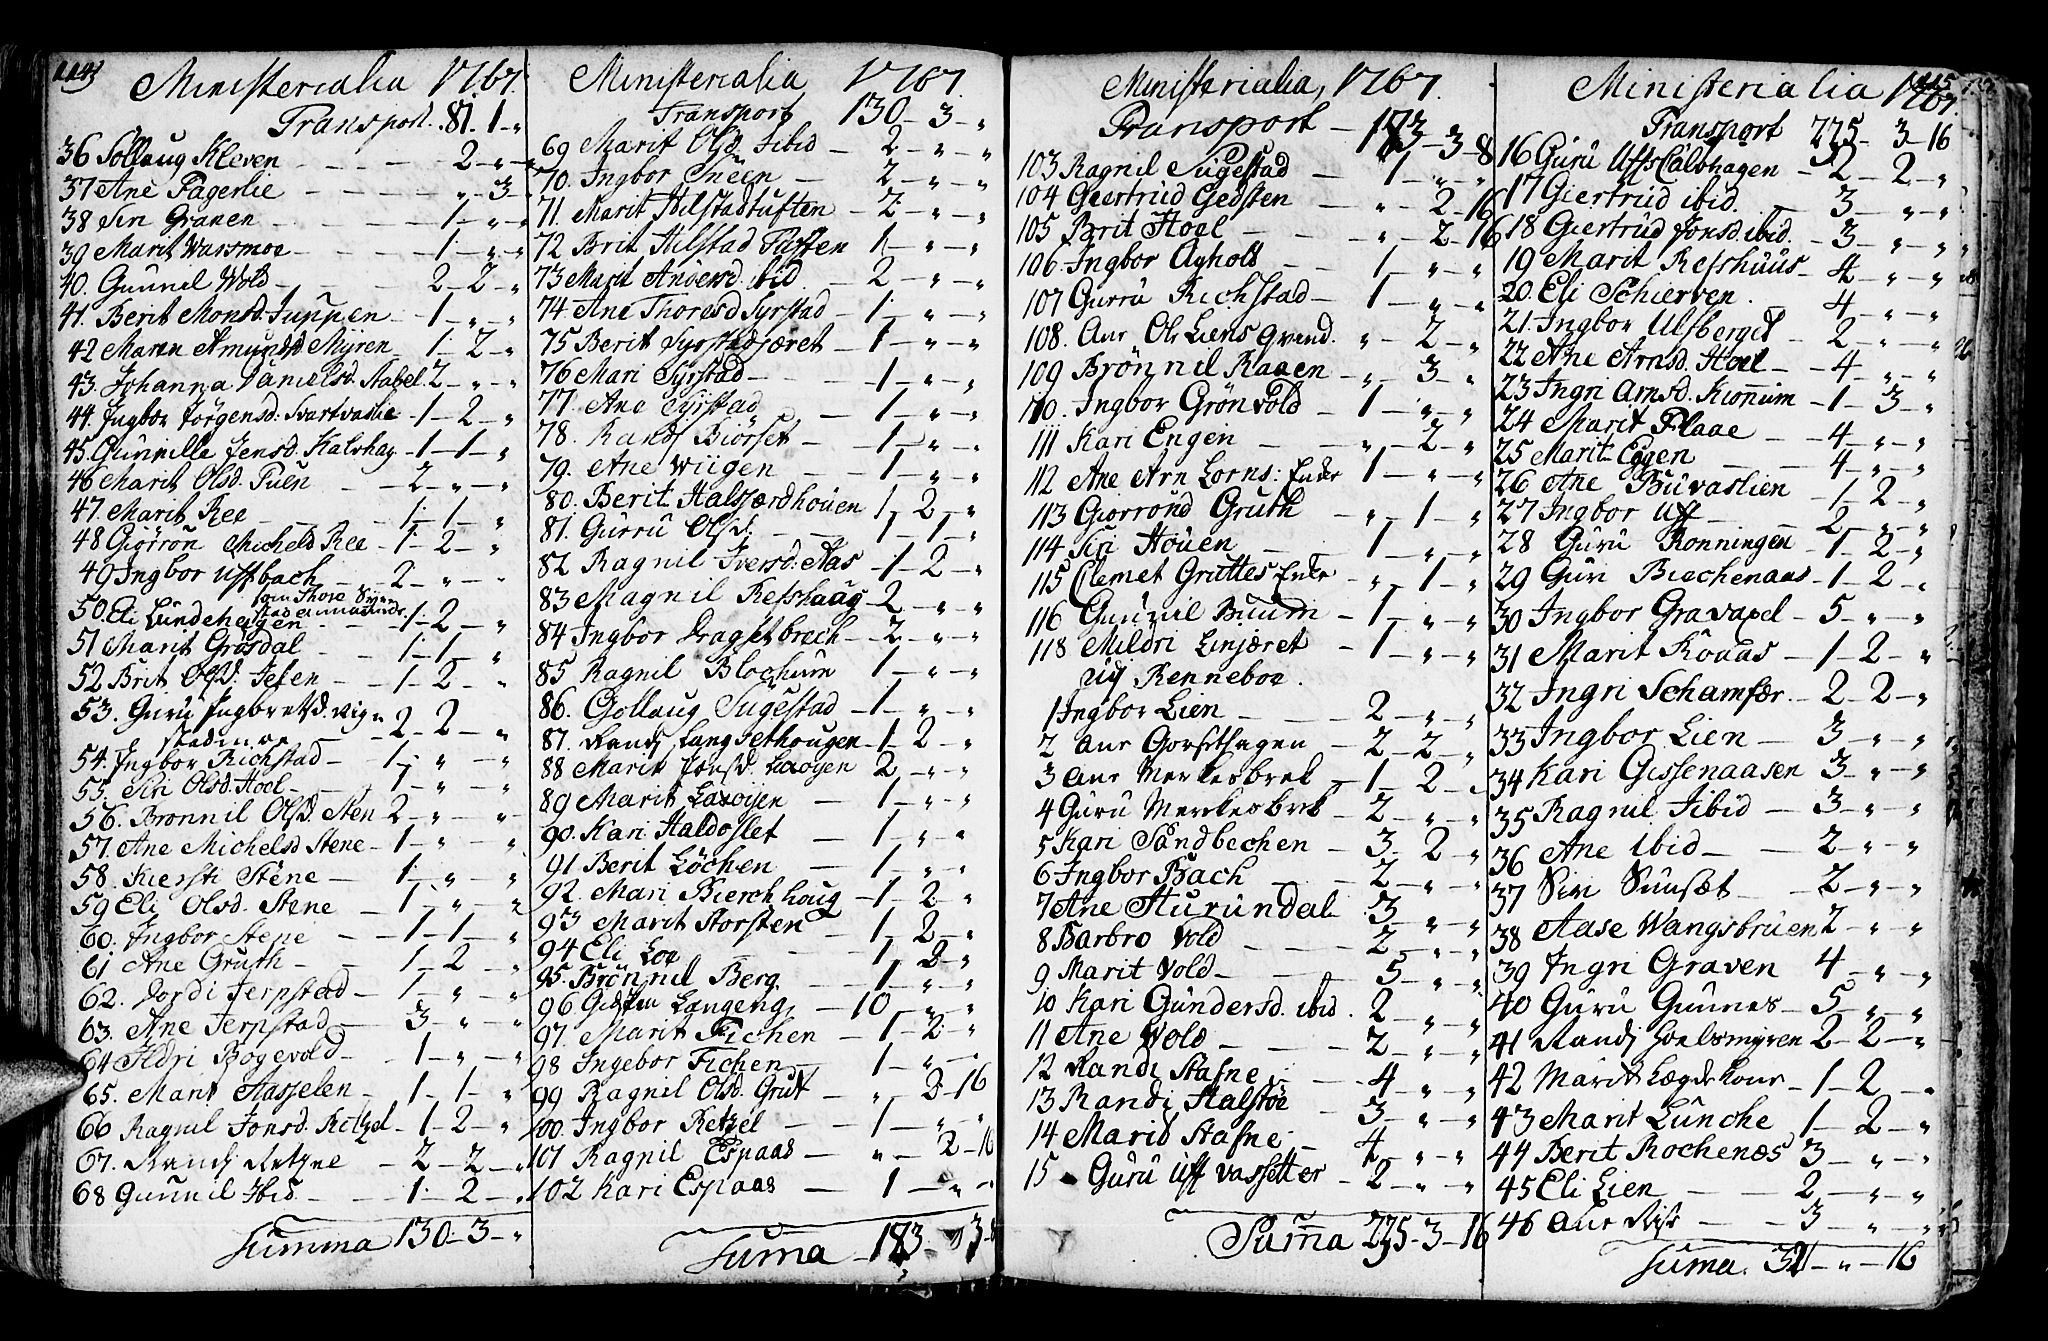 114
Ministerialia 1767.
Transport. 81. 1 - „
36 Sollaug Kleven - 2 - „ - „
37 Ane Fagerlie - „ - 3 -
38 Siri Graven - 1 - „ - „
39 Marit Warsmoe - 1 - „ - „
40. Gunnil Wold - 2 - 2 - „
41. Berit Monsd. Juppen - 1 - „ - „
42 Maren Amundsd Myren 1 - 2 - „
43. Johanna Danielsd. Aabel 2 - „ - „
44. Ingbor Jørgensd. Svartvaslie - 1 - 2 - „
45. Gunnille Jensd. Kalvhag - 1 - 1 - „
46 Marit Olsd. Puen - 2 - „ - „
47. Marit Ree - 1 - 1 - „
48 Giørrøn Michelsd Ree - 1 - 2 - „
49 Ingbor Uffbach - 2 - „ - „
50. Eli Lundehagen - 1 - 2 - „
51 Marit Grøsdal - 1 - 1 - „
52 Brit Olsd. Jesen - 1 - 2 - „
53. Guru Ingbretsd. Rig - 2 - 2 - „
54. Ingbor Richstad - 1 - „ - „
55. Siri Olsd. Hoel - 1 - „ - „
56. Brønnil Olsd. Sten 2 - „ - „
57. Ane Michelsd Stene - 1 - „ - „
58. Kiersti Stene - 1 - „ - „
59 Eli Olsd. Stene - 1 - „ - „
60. Ingbor Stene - 1 - 1 - „
61 Ane Gruth - 1 - 2 - „
62. Jordi Jerpstad - 1 - „ - „
63. Ane Jerpstad - 3 - „ - „
64 Ildri Bogevold - 1 - „ - „
65. Marit Hasselen - 1 - 1 - „
66 Ragnil Jonsd. Retzel - 1 - 2 - „
67. Randj Retzne - 2 - 2 - „
68 Gunnil Ibid - 1 - 2 - „
Summa 130 - 3 - „
Ministerialia 1767.
Transport 130 - 3 - „
69 Marit Olsd. Ibid - 2 - „ - „
70. Ingbor Eneen - 2 - „ - „
71. Marit Hilstadtuften - 2 - „ - „
72 Brit Hilstad Tuften 1 - „ - „
73 Marit Andersd ibid - 2 - „ - „
74 Ane Thoresd Syrstad - 1 - „ - „
75 Berit Syrstadjæret - 1 - „ - „
76 Mari Syrstad - 1 - „ - „
77. Ane Syrstad - 1 - „ - „
78. Randj Biørset - 1 - „ - „
79. Ane Wiigen - 1 - „ - „
80. Berit Halsjærdhouen 1 - 2 - „
81. Gurru Olsd. - 1 - 1 - „
82 Ragnil Iversd. Aas - 1 - 2 - „
83 Magnil Refshaug 2 - „ - „
84 Ingbor Dragsetbrech - 2 - „ - „
85 Ragnil Blochum 1 - „ - „
86. Gollaug Sugestad - 1 - „ - „
87. Randj Langsethougen - 1 - 2 - „
88 Marit Jonsd. Laxøyen 2 - „ - „
89 Marit Laxøyen - 1 - „ - „
90. Kari Haldoslet - 1 - „ - „
91 Berit Løchen - 1 - „ - „
92. Mari Bierchhoug - 1 - 2 - „
93 Marit Storsten - 1 - 2 - „
94 Eli Loe - 1 - 2 - „
95. Brønnil Berg. - 1 - „ - „
96 Langeng - 10 - „ - „
97. Marit Fichen - 1 - 2 - „
98 Ingebor Fichen - 1 - „ -
99 Ragnil Olsd. Grut - „ - 2 - 16
100. Ingbor Retzel - 1 - „ - „
101 Ragnil Espaas - „ - 2 - 16
102 Kari Espaas - 1 - „ - „
Suma 183 - 3 - 8
Ministerialia, 1767.
Transport - 183 - 3 - 8
103 Ragnil Sugestad - 1 - „ - „
104 Giertrud Gedsten - „ - 2 - 16
105 Brit Hoel - „ - 2 - 16
106. Ingbor Agholt - 1 - „ - „
107 Gurru Richstad - 1 - „ - „
108. Ane Ols Liens Qvind. „ - 2 - „
109 Brønnil Raaen - „ - 3 - „
110. Ingbor Grønvold - 1 - „ - „
111 Kari Engen - „ - 2 - „
112 Ane Arn Lorns: Enke 1 - „ - „
113 Giorrond Gruth - „ - 1 - „
114 Siri Houen - 1 - „ - „
115 Clemet Gruttes Enke - „ - 1 - „
116 Gunnil Buum - 1 - „ - „
118 Mildri Linjæret - 1 - „ - „
Renneboe.
1 Ingbor Lien - 2 - „ - „
2 Ane Gorsethagen - 2 - 2 - „
3 Ane Merkesbrek - 1 - 2 - „
4 Guru Merkesbrek - 2 - „ - „
5 Kari Sandbechen - 3 - 2 - „
6 Ingbor Bach - 2 - „ - „
7 Ane Hurundal - 3 - „ - „
8 Barbro Vold - 2 - „ - „
9 Marit Vold - 5 - „ - „
10 Kari Gundersd. ibid. 2 - „ - „
11 Ane Vold - 2 - „ - „
12 Randi Stafne - 4 - „ - „
13 Randi Halstøe - 3 - „ - „
14 Marit Stafne - 4 - „ - „
15 Guru Uff Vassetter - 2 - „ - „
Suma 225 - 3 - 16
115
Ministerialia 1767.
Transport 225 - 3 - 16
16 Guru Uffs Calvhagen - 2 - 2 - „
17 Giertrud ibid. - 3 - „ - „
18 Giertrud Jonsd. ibid. - 3 - „ - „
19 Marit Refshuus - 4 - „ - „
20. Eli Schierven. 4 - „ - „
21. Ingbor Ulsberget - 2 - „ - „
22 Ane Arnsd. Hoel - 4 - „ - „
23 Ingri Arnsd. Kionnum - 1 - 3 - „
24 Marit Flaae - 4 - „ - „
25 Marit Eggen - 4 - „ - „
26 Ane Buvaslien - 1 - 2 - „
27 Ingbor Uff - 2 - „ - „
28 Guru Rønningen - 1 - 2 - „
29 Guri Biechenaas - 1 - 2 - „
30 Ingbor Gravapel - 5 - „ - „
31 Marit Kouas - 1 - 2 - „
32 Ingri Schamfær - 2 - 2 - „
33 Ingbor Lien - 3 - „ - „
34 Kari Gissenaasen 3 - „ - „
35 Ragnil Ibid - 3 - „ - „
36 Ane Ibid - 2 - „ - „
37 Siri Sunsæt - 2 - „ - „
38 Aase Wangsbruen 2 - „ - „
39 Ingri Graven 4 - „ - „
40 Guru Gunnes - 5 - „ - „
41 Randj Hoelsmyren 2 - 2 - „
42 Marit Lægdekone - 1 - 2 - „
43 Marit Lunche 1 - 2 - „
44 Berit Rochenes 3 - „ - „
45 Eli Lien - 2 - „ - „
46 Ane Rise - 3 - „ - „
Suma. 321 - „ - 16